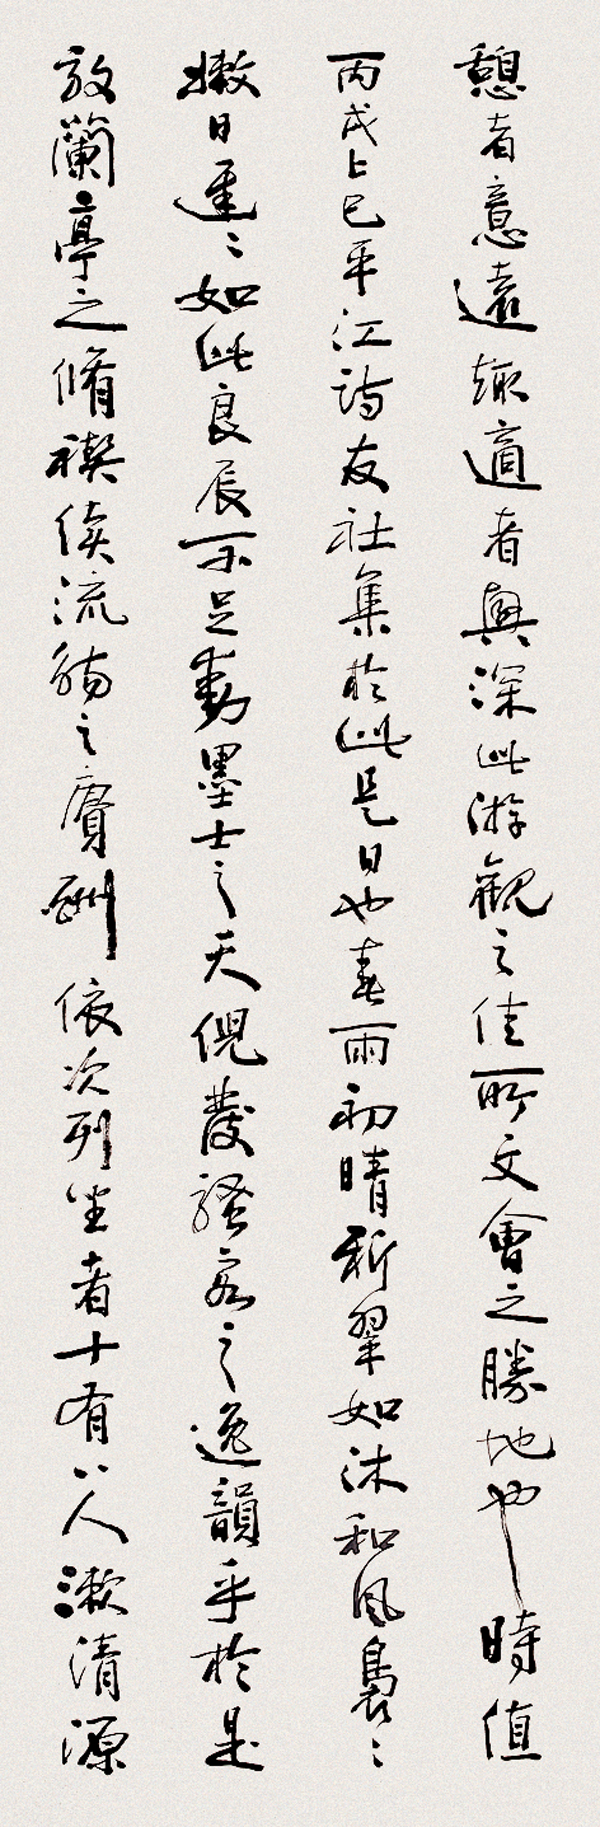 憩者意遠趣適者興深此游觀之佳所文會之勝地也時值
丙戌上巳平江詩友社集於此是日也春雨初晴新翠如沐和風裊〻
嫩日遲〻如此良辰不足動墨士之天倪發騷客之逸韻乎於是
放蘭亭之脩禊續流觴之賡酬依次列坐者十有八人漱清源